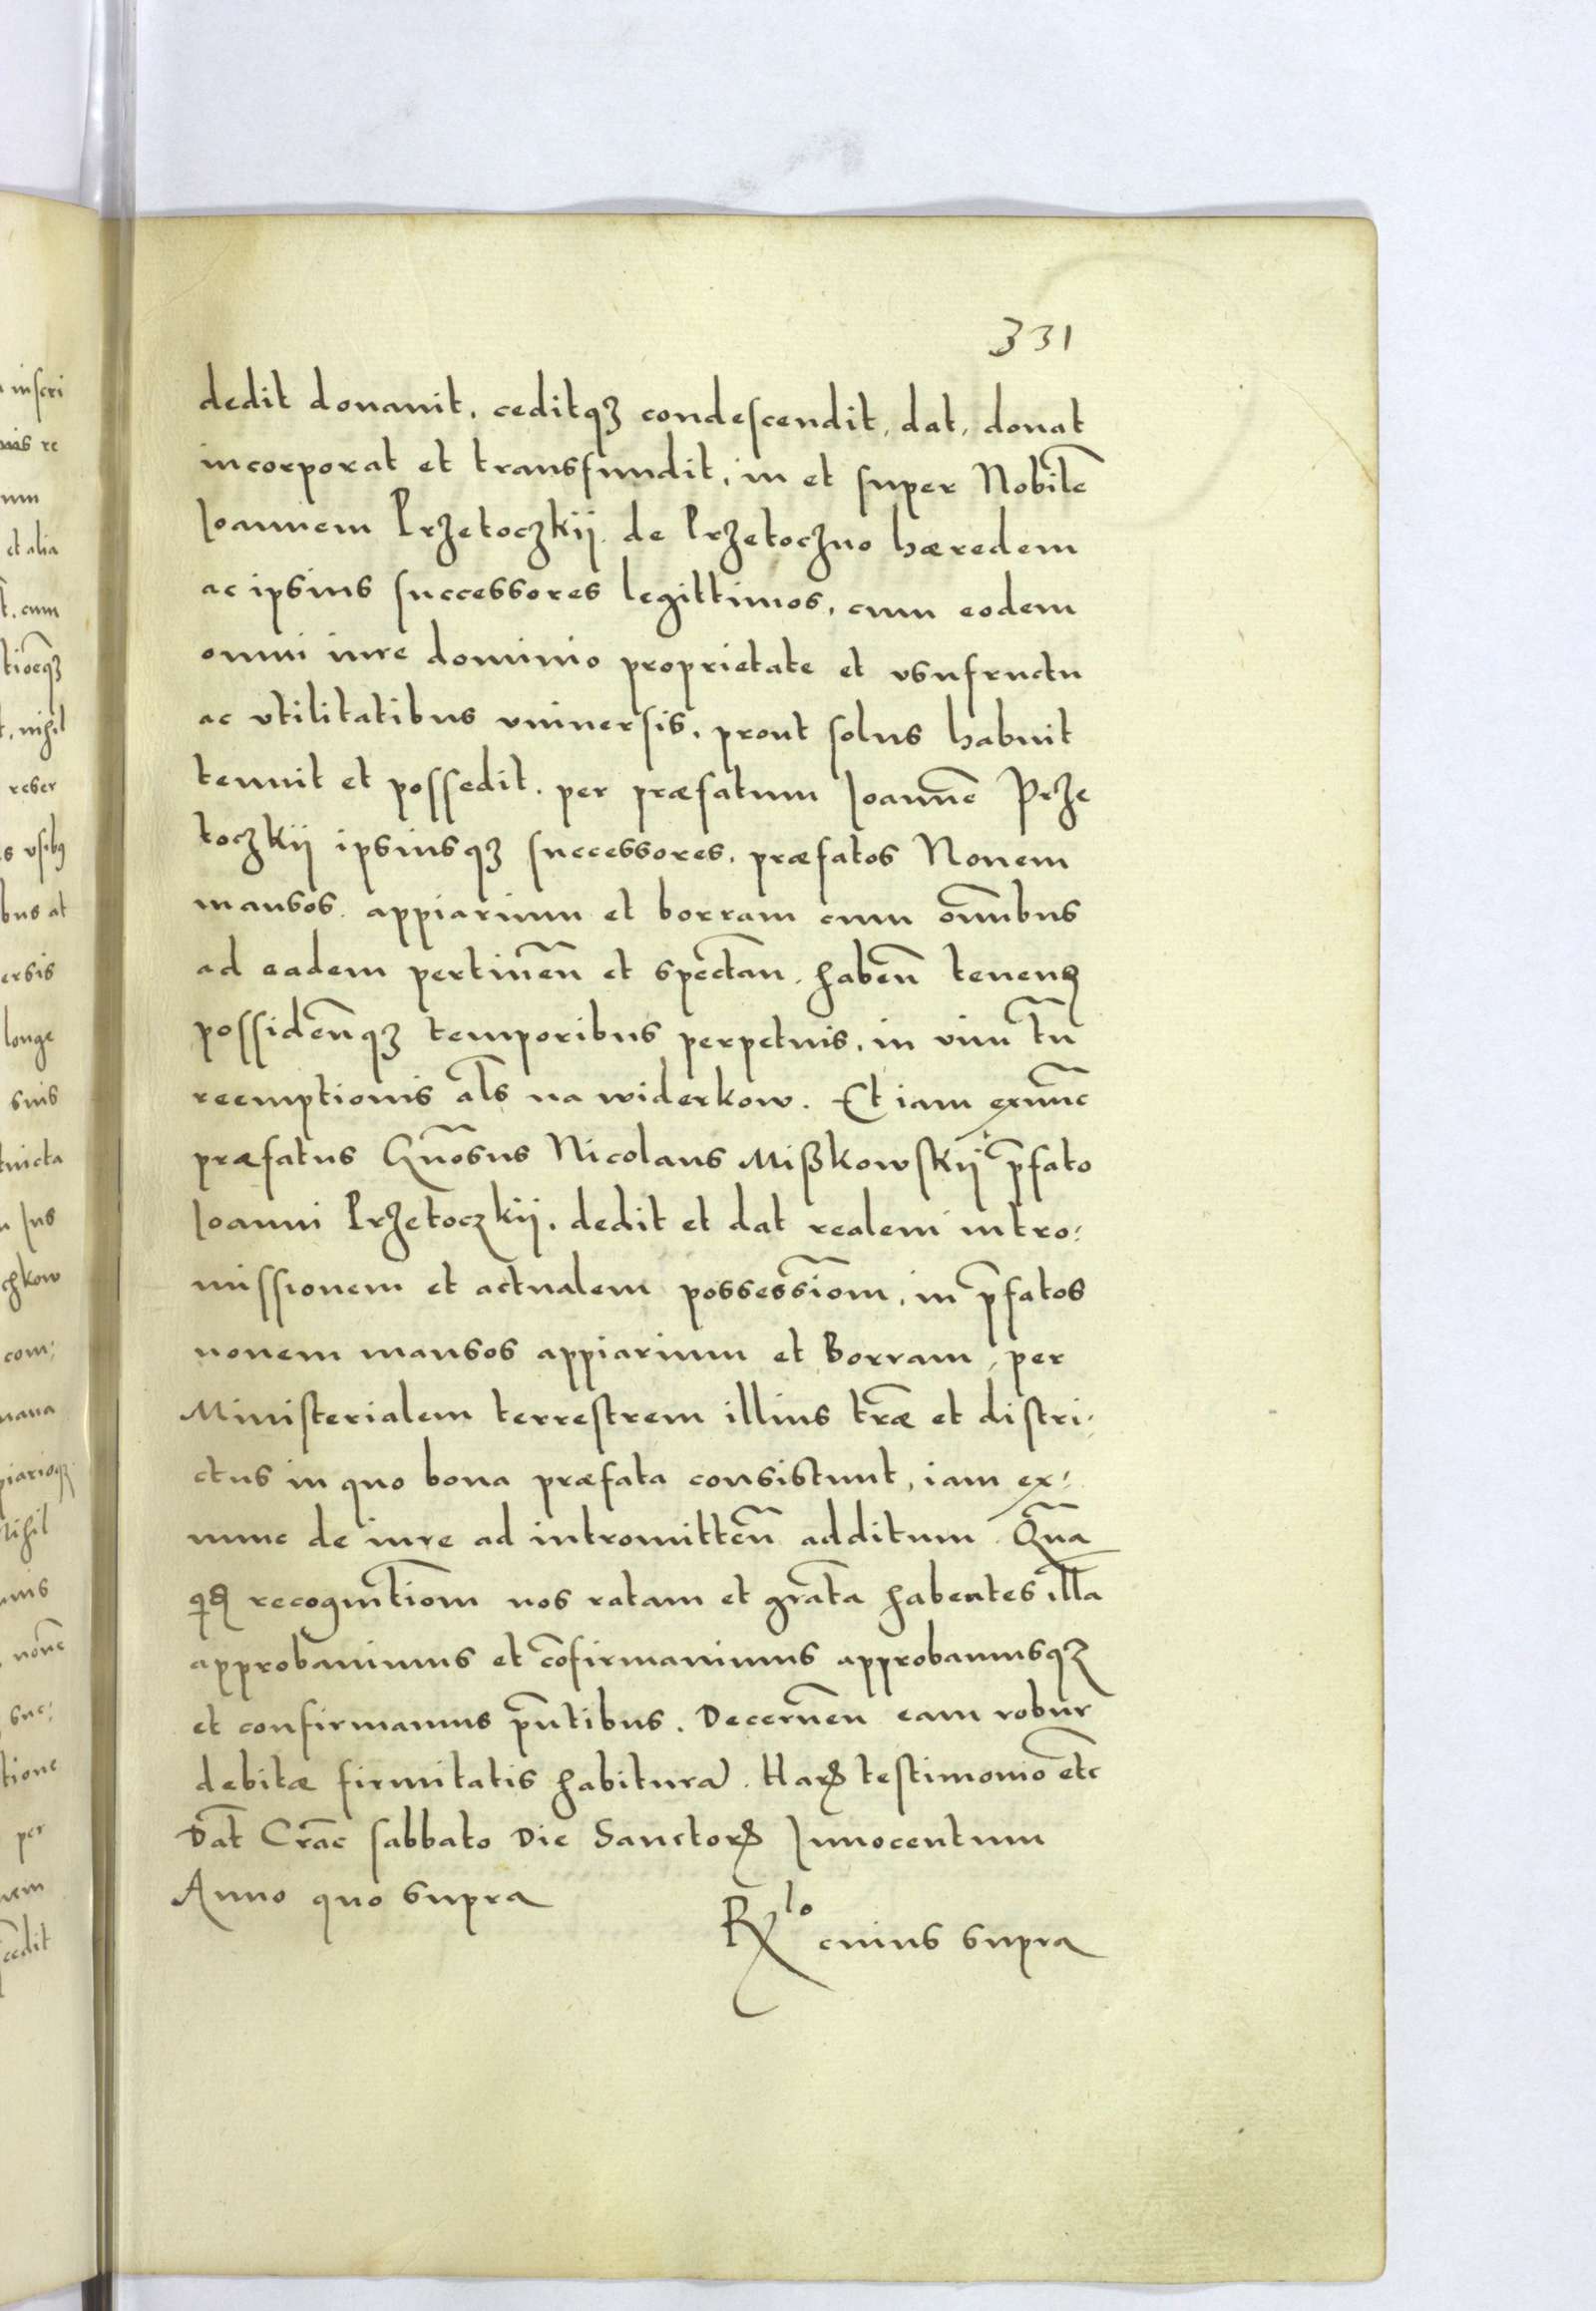 331
dedit donauit, ceditqȝ condescendit, dat, donat
incorporat et transfundit, in et super Nobilē
Ioannem Przetoczkij de Przetoczno hæredem
ac ipsius successores legittimos, cum eodem
omni iure dominio proprietate et vsufructu
ac vtilitatibus vniuersis, prout solus habuit
tenuit et possedit. per præfatum Ioannē Prze
toczkij ipsiusqȝ successores, præfatos Nouem
mansos appiarium et borram cum om̄ibus
ad eadem pertineñ et spectan. habeñ teneñ
possideñqȝ temporibus perpetuis, in vim tn̄
reemptionis al̄s na widerkow. Et iam exnūc
præfatus Gn̄osus Nicolaus Mißkowskij p̄fato
Ioanni Przetoczkij, dedit et dat realem intro:
missionem et actualem possessiom̄, in p̄fatos
nouem mansos appiarium et Borram, per
Ministerialem terrestrem illius tr̄æ et distri:
ctus in quo bona præfata consistunt, iam ex:
nunc de iure ad intromitteñ additum. Quā
qd recognitiom̄ nos ratam et gratā habentes illā
approbauimus et cōfirmauimus approbamusqȝ
et confirmamus pn̄tibus. Decerneñ eam robur
debitæ firmitatis habiturā. Harꝝ testimonio etc̄
Dat̄ Crac̄ sabbato Die Sanctorꝝ Innocentum
Anno quo supra
Rlo cuius supra
inscri
re
num
et alia
t. cum
tiōeqȝ
t, nihil
reser
s vsibꝰ
bus at
ersis
longe
suis
n Ius
chkow
com:
piarioqȝ
Nihil
suc:
tione
per
nem
cēdit